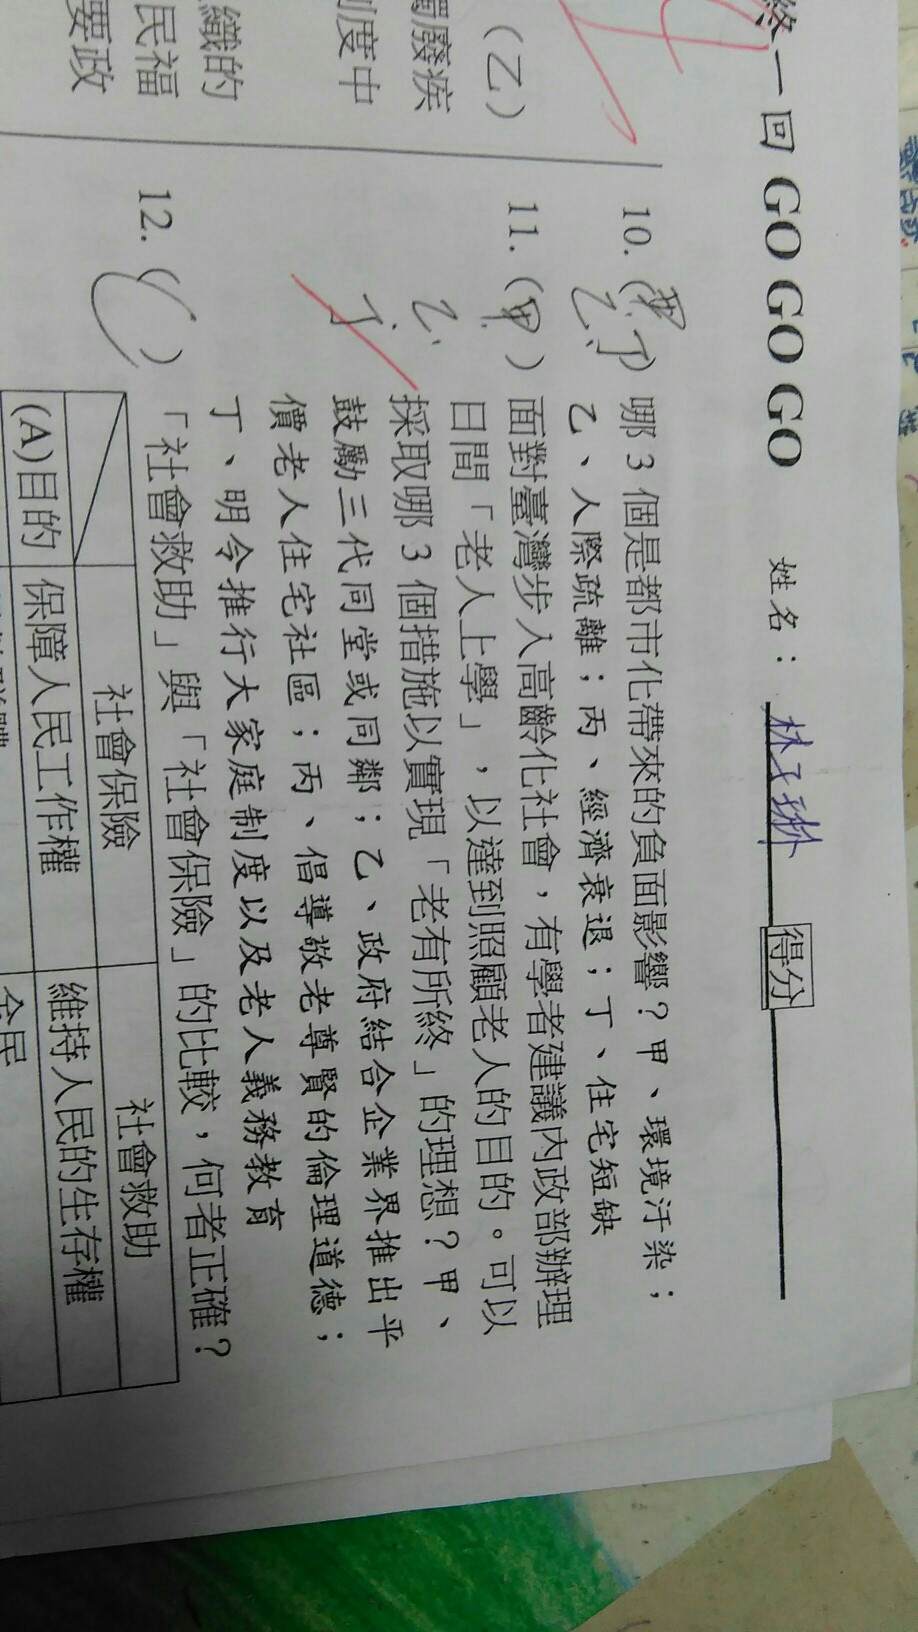 終一回 GO GO GO 姓名： 得分
（乙）
獨廢疾
制度中
織的
民福
要政
10. ( 甲 乙、丁) 哪 3 個是都市化帶來的負面影響？甲、環境汙染；
乙、人際疏離；丙、經濟衰退；丁、住宅短缺
11. ( 甲、 乙、 丁 ) 面對臺灣步入高齡化社會，有學者建議內政部辦理
日間「老人上學」，以達到照顧老人的目的。可以
採取哪 3 個措施以實現「老有所終」的理想？甲、
鼓勵三代同堂或同鄰；乙、政府結合企業界推出平
價老人住宅社區；丙、倡導敬老尊賢的倫理道德；
丁、明令推行大家庭制度以及老人義務教育
12. ( ) 「社會救助」與「社會保險」的比較，何者正確？
社會保險 社會救助
(A)目的 保障人民工作權 維持人民的生存權
全民